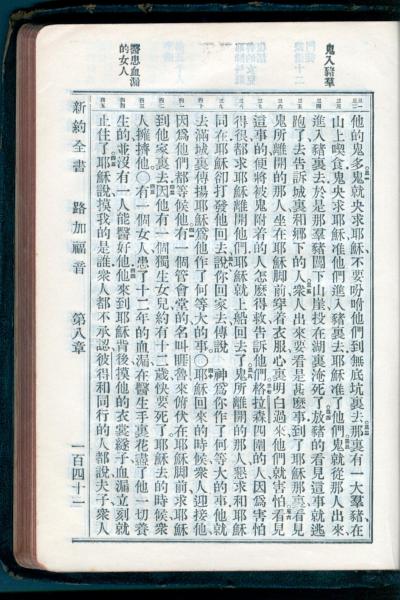 鬼入豬羣
醫患血漏
的女人
他的鬼多鬼就央求耶穌、不要吩咐他們到無底坑裏去那裏有一大羣豬在
山上喫食鬼央求耶穌准他們進入豬裏去耶穌准了他們鬼就從那人出來、
進入豬裏去於是那羣豬闖下山崖投在湖裏淹死了放豬的看見這事就逃
跑了去告訴城裏和鄉下的人衆人出來要看是甚麽事到了耶穌那裏看見
鬼所離開的那人坐在耶穌脚前穿着衣服心裏明白過來他們就害怕看見
這事的便將被鬼附着的人怎麽得救告訴他們格拉森四圍的人因爲害怕
得很都求耶穌離開他們耶穌就上船回去了鬼所離開的那人懇求和耶穌
同在耶穌卻打發他回去說你回家去傳說　神爲你作了何等大的事他就
去滿城裏傳揚耶穌爲他作了何等大的事○耶穌回來的時候衆人迎接他、
因爲他們都等候他有一個管會堂的名叫睚魯來俯伏在耶穌脚前求耶穌
到他家裏去因他有一個獨生女兒約有十二歲快要死了耶穌去的時候衆
人擁擠他○有一個女人患了十二年的血漏在醫生手裏花盡了他一切養
生的並沒有一人能醫好他他來到耶穌背後摸他的衣裳繸子血漏立刻就
止住了耶穌說摸我的是誰衆人都不承認彼得和同行的人都說夫子衆人
新約全書　路加福音　第八章　一百四十二